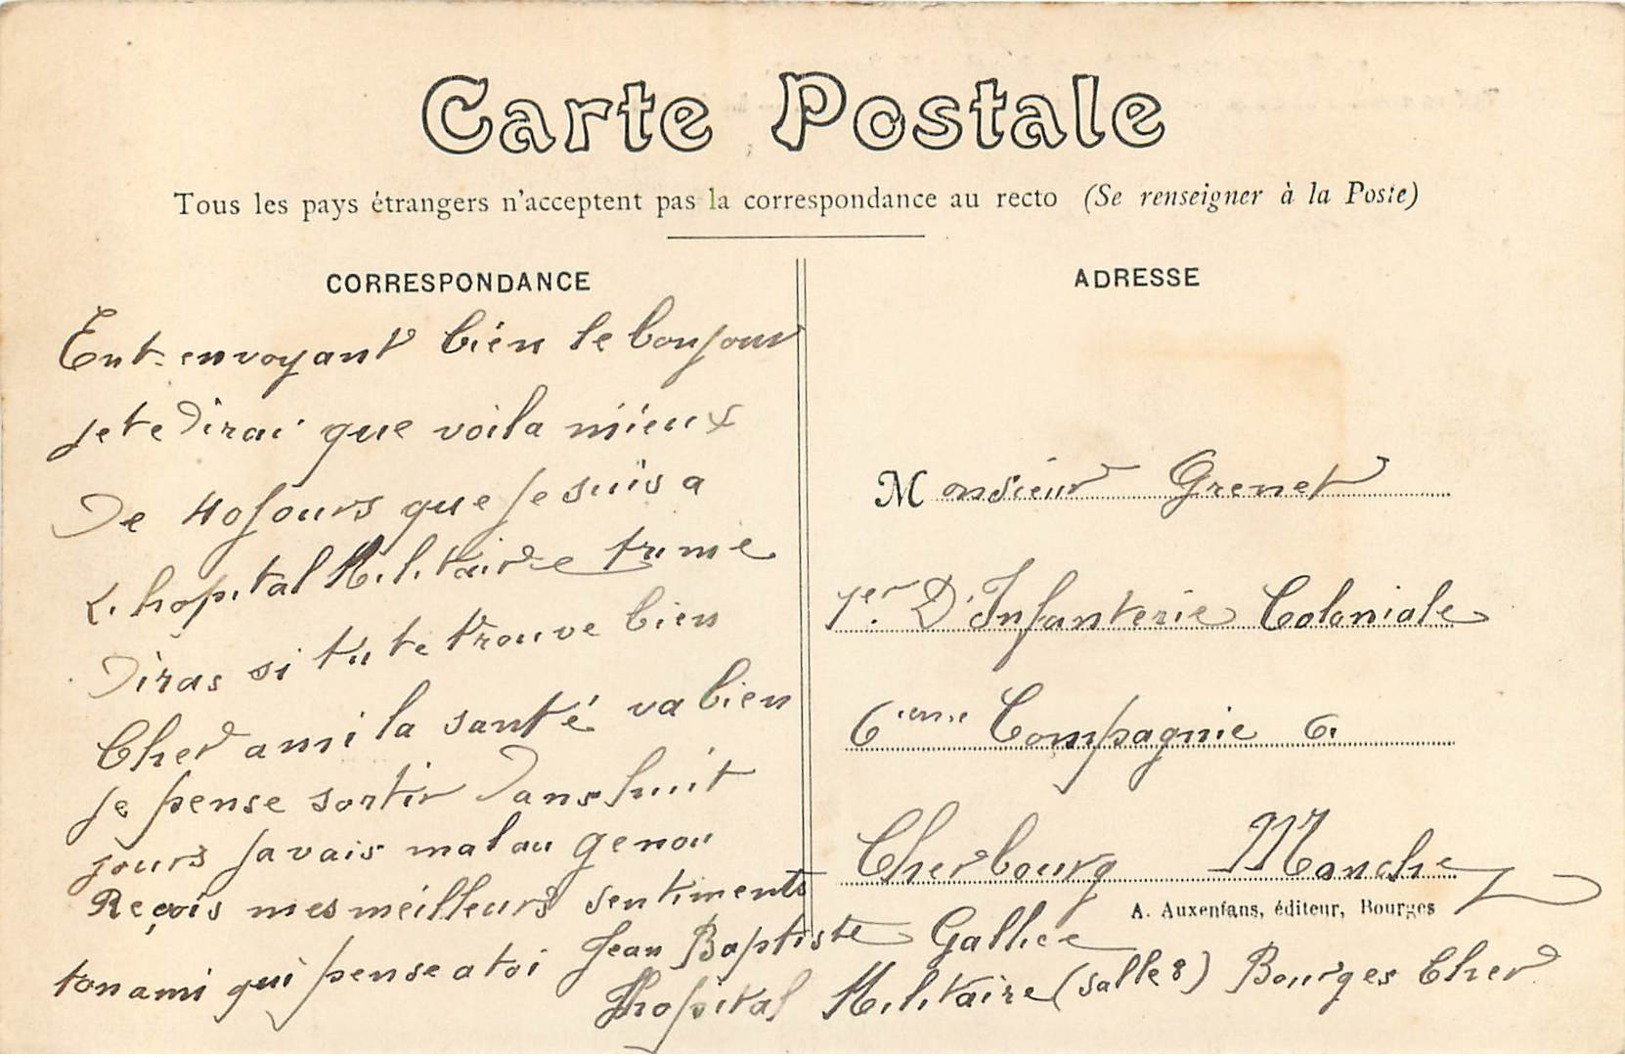 Carte Postale
Tous les pays étrangers n'acceptent pas la correspondance au recto (Se renseigner à la Poste)
CORRESPONDANCE
Ent envoyant bien le bonjour
je te Dirai que voila mieux
De 40 jours que je suis a
L hopital Militaire tu me
Diras si tu te trouve bien
Cher ami la santé va bien
je pense sortir Dans huit
jours javais mal au genou
Reçois mes meilleurs sentiments
ton ami qui pense a toi Jean Baptiste Gallice
hopital Militaire (salle 8) Bourges Cher
ADRESSE
Monsieur Grenet
1er D'Infanterie Coloniale
6ieme Compagnie 6.
Cherbourg Manche
A. Auxenfans, éditeur, Bourges